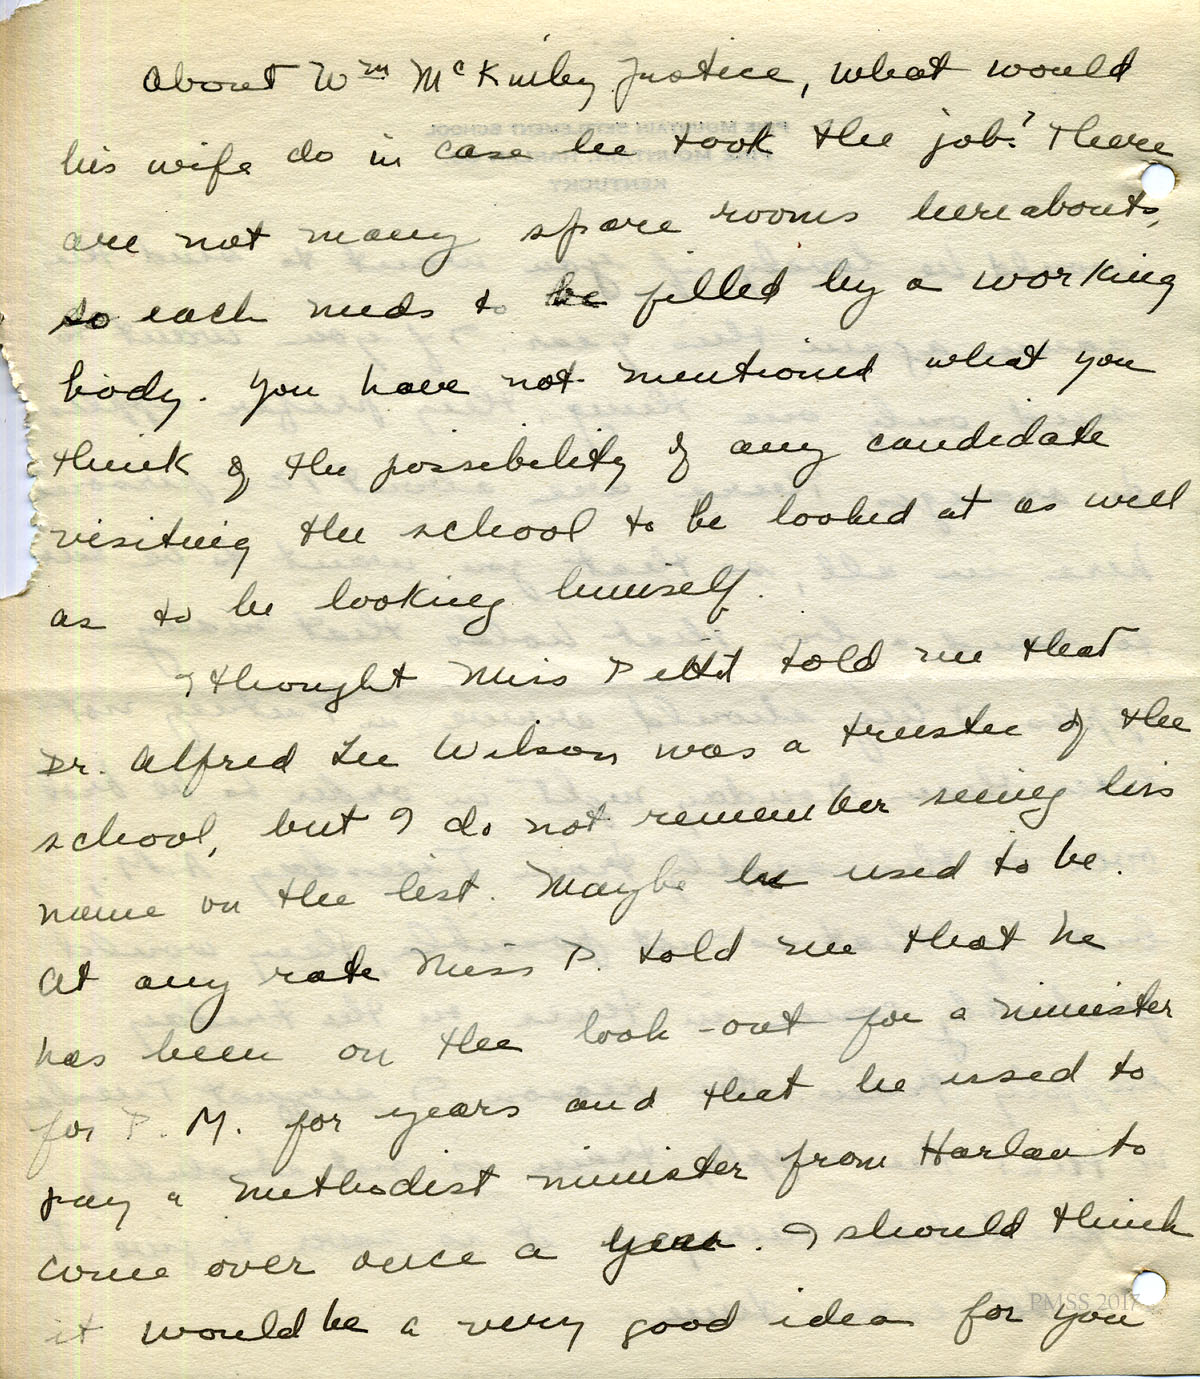 About Wm McKinley Justice, what would
his wife do in case he took the job? There
are not many spare rooms hereabouts,
so each needs to be filled by a working
body. You have not mentioned what you
think of the possibility of any candidate
visiting the school to be looked at as well
as to be looking himself.
I thought Miss Pettit told me that
Dr. Alfred Lee Wilson was a trustee of the
school, but I do not remember seeing his
name on the list. Maybe he used to be.
At any rate Miss P. told me that he
has been on the look-out for a minister
for P. M. for years and that he used to
pay a Methodist minister from Harlan to
come over once a year. I should think
it would be a very good idea for you
PMSS 2017
PINE MOUNTAIN SETTLEMENT SCHOOL
KENTUCKY